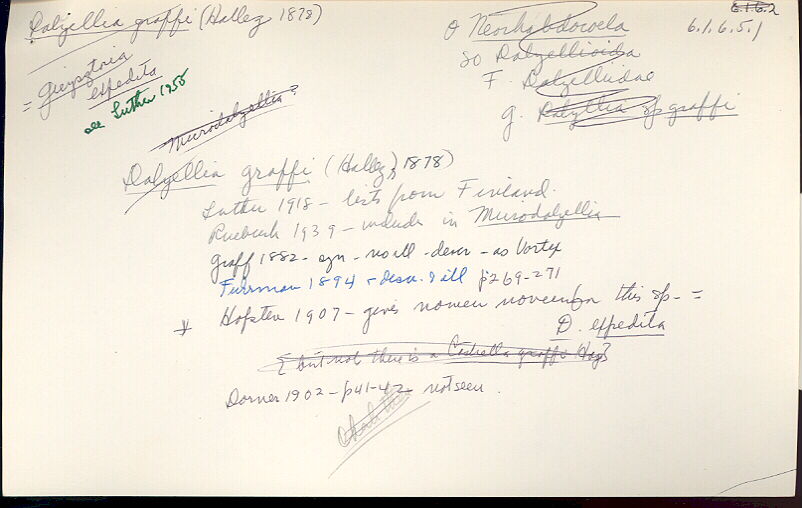 Dalyellia graffi (Hallez 1878)
= Gieysztoria
expedita
see Luther 1955
6.1.6.2
6.1.6.5.1
O Neorhabdocoela
SO Dalyellioida
F. Dalyelliidae
g. Dalyellia sp graffi
Microdalyellia?
Dalyellia graffi (Hallez, 1878)
Luther 1918 - lists from Finland.
Ruebush 1939 - include in Microdalyellia
Graff 1882 - syn - no ill - descr - as Vortex
Fuhrman 1894 - descr. & ill p269-271
* Hofsten 1907 - gives nomen novum for this sp - =
D. expedita
[but not there is a Castrella graffi Hay]
Dorner 1902 - p41-42 not seen.